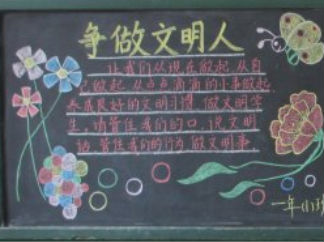 争做文明人
让我们从现在做起从自
己做起从点点滴滴的小事做起
养成良好的文明习惯做文明学
生，请管住我们的口，说文明
话管住我们的行为做文明事。
一年(1)班